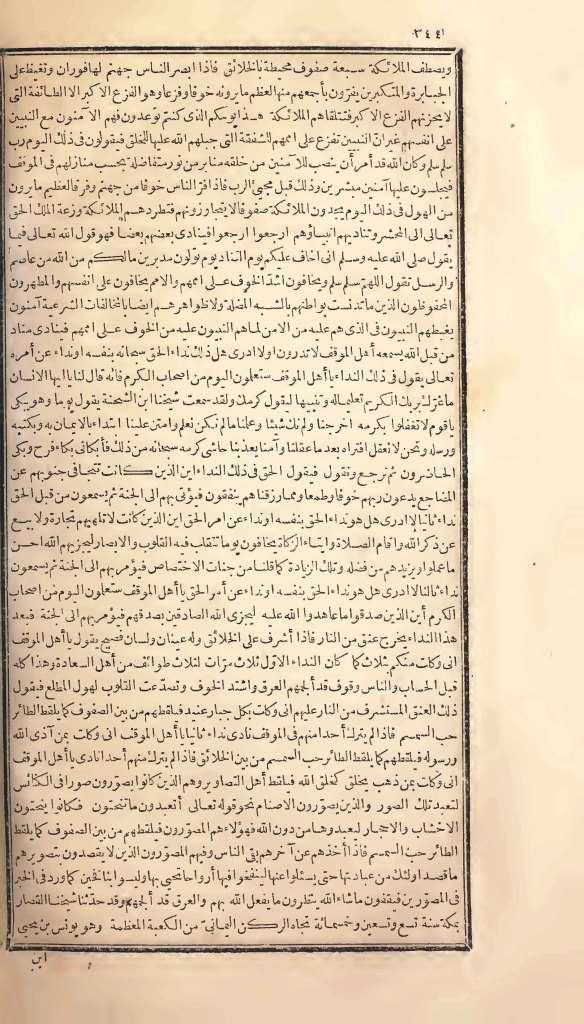 ٣٤٤
ويصطف الملائكة سبعة صفوف محيطة بالخلائق فاذا ابصر الناس جهنم لها فوران وتغيظ على
الجبابرة والمتكبرين يفرّون بأجمعهم منها لعظيم ما يرونه خوفا وفزعا وهو الفزع الاكبر الا الطائفة التى
لا يحزنهم الفزع الاكبر فتتلقاهم الملائكة هذا يومكم الذى كنتم توعدون فهم الآمنون مع النبيين
على انفسهم غير ان النبيين تفزع على اممهم للشفقة التى جبلهم الله عليها للخلق فيقولون فى ذلك اليوم رب
سلم سلم وكان الله قد أمر أن ينصب للآمنين من خلقه منابر من نور متفاضلة بحسب منازلهم فى الموقف
فيجلسون عليها آمنين مبشرين وذلك قبل مجىء الرب فاذا فرّ الناس خوفا من جهنم وفرقا لعظيم ما يرون
من الهول فى ذلك اليوم يجدون الملائكة صفوفا لا يتجاوزونهم فتطردهم الملائكة وزعة الملك الحق
تعالى الى المحشر وتناديهم انبياؤهم ارجعوا ارجعوا فينادى بعضهم بعضا فهو قول الله تعالى فيما
يقول صلى الله عليه وسلم انى اخاف عليكم يوم التناد يوم تولون مدبرين مالكم من الله من عاصم
والرسل تقول اللهم سلم سلم ويخافون اشدّ الخوف على اممهم والامم يخافون على انفسهم والمطهرون
المحفوظون الذين ما تدنست بواطنهم بالشبه المضلة ولا ظواهرهم ايضا بالمخالفات الشرعية آمنون
يغبطهم النبيون فى الذى هم عليه من الامن لما هم النبيون عليه من الخوف على اممهم فينادى مناد
من قبل الله يسمعه أهل الموقف لا تدرون اولا ادرى هل ذلك نداء الحق سبحانه بنفسه او نداء عن أمره
تعالى يقول فى ذلك النداء يا أهل الموقف ستعلمون اليوم من اصحاب الكرم فانه قال لنا يا ايها الانسان
ما غرّك بربك الكريم تعليما له وتنبيها ليقول كرمك ولقد سمعت شيخنا ابن الشحنة يقول يوما وهو يبكى
يا قوم لا تفعلوا بكرمه اخرجنا ولم نك شيئا وعلمنا ما لم نكن نعلم وامتن علينا ابتداء بالايمان به وبكتبه
ورسله ونحن لا نعقل افتراه يعذبنا بعد ما عقلنا وآمنا حاشى كرمه سبحانه من ذلك فأبكانى بكاء فرح وبكى
الحاضرون ثم نرجع ونقول فيقول الحق فى ذلك النداء اين الذين كانت تتجافى جنوبهم عن
المضاجع يدعون ربهم خوفا وطمعا ومما رزقناهم ينفقون فيؤتى بهم الى الجنة ثم يسمعون من قبل الحق
نداء ثانيا لا ادرى هل هو نداء الحق بنفسه او نداء عن امر الحق اين الذين كانت لا تلهيهم تجارة ولا بيع
عن ذكر الله واقام الصلاة وايتاء الزكاة يخافون يوما تتقلب فيه القلوب والابصار ليجزيهم الله احسن
ما عملوا ويزيدهم من فضله وتلك الزيادة كما قلنا من جنات الاختصاص فيؤمر بهم الى الجنة ثم يسمعون
نداء ثالثا لا ادرى هل هو نداء الحق بنفسه او نداء عن أمر الحق يا أهل الموقف ستعلمون اليوم من اصحاب
الكرم أين الذين صدقوا ما عاهدوا الله عليه ليجزى الله الصادقين بصدقهم فيؤمر بهم الى الجنة فبعد
هذا النداء يخرج عنق من النار فاذا أشرف على الخلائق وله عينان ولسان فصيح يقول يا أهل الموقف
انى وكلت منكم بثلاث كما كان النداء الاوّل ثلاث مرّات لثلاث طوائف من أهل السعادة وهذا كله
قبل الحساب والناس وقوف قد ألجمهم العرق واشتد الخوف وتصدّعت القلوب لهول المطلع فيقول
ذلك العنق المستشرف من النار عليهم انى وكلت بكل جبار عنيد فيلقطهم من بين الصفوف كما يلقط الطائر
حب السمسم فاذا لم يترك أحدا منهم فى الموقف نادى نداء ثانيا يا أهل الموقف انى وكلت بمن آذى الله
ورسوله فيلقطهم كما يلقط الطائر حب السمسم من بين الخلائق فاذا لم يترك منهم أحدا نادى يا أهل الموقف
انى وكلت بمن ذهب يخلق كخلق الله فيلقط أهل التصاوير وهم الذين كانوا يصوّرون صورا فى الكنائس
لتعبد تلك الصور والذين يصوّرون الاصنام نحو قوله تعالى أتعبدون ما تنحتون فكانوا ينحتون
الاخشاب والاحجار ليعبدوها من دون الله فهؤلاء هم المصوّرون فيلقطهم من بين الصفوف كما يلقط
الطائر حب السمسم فاذا أخذهم عن آخرهم بقى الناس وفيهم المصوّرون الذين لا يقصدون بتصويرهم
ما قصد اولئك من عبادتها حتى يسئلوا عنها لينفخوا فيها أرواحا تحيى بها وليسوا بنافخين كما ورد فى الخبر
فى المصوّرين فيقفون ما شاء الله ينتظرون ما يفعل الله بهم والعرق قد ألجمهم وقد حدّثنا شيخنا القصار
بمكة سنة تسع وتسعين وخمسمائة تجاه الركن اليمانىّ من الكعبة المعظمة وهو يونس بن يحيى
ابن